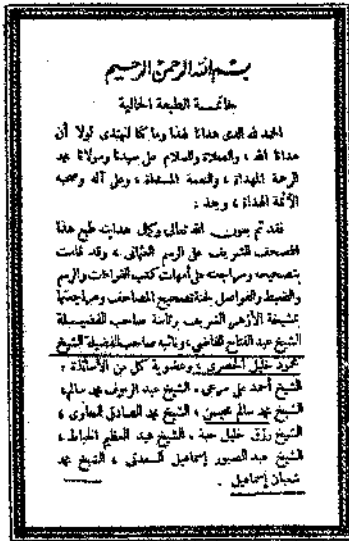 بسم الله الرحمن الرحيم
خاتمة الطبعة الحالية
الحمد لله الذى هدانا لهذا وما كنا لنهتدى لولا أن
هدانا الله ، والصلاة والسلام على سيدنا ومولانا محمد
الرحمة المهداة ، والنعمة المسداة ، وعلى آله وصحبه
الأئمة الهداة ، وبعد :
فقد تم بعون الله تعالى وكمال هدايته طبع هذا
المصحف الشريف على الرسم العثمانى ، وقد قامت
بتصحيحه ومراجعته على أمهات كتب القراءات والرسم
والضبط والفواصل لجنة تصحيح المصاحف ومراجعتها
بمشيخة الأزهر الشريف برئاسة صاحب الفضيلة
الشيخ عبد الفتاح القاضى، ونائبه صاحب الفضيلة الشيخ
محمود خليل الحصرى، وعضوية كل من الأساتذة :
الشيخ أحمد على مرعى ، الشيخ عبد الرءوف محمد سالم،
الشيخ محمد سالم محيسن ، الشيخ محمد الصادق قمحاوى ،
الشيخ رزق خليل حبة ، الشيخ عبد العظيم الخياط ،
الشيخ عبد الصبور إسماعيل السعدنى ، الشيخ محمد
شعبان إسماعيل .